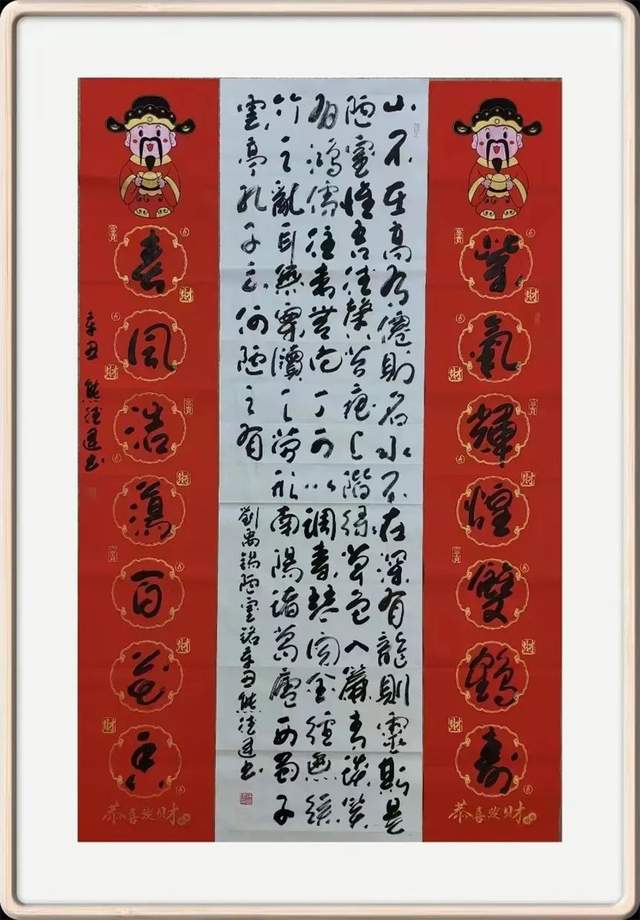 紫氣輝煌雙鶴壽
恭喜发财
山不在高有僊則名水不在深有龍則靈斯是
陋室惟吾德馨苔痕上階綠草色入簾青談笑
有鴻儒往來無白丁可以調素琴閱金經無絲
竹之亂耳無案牘之勞形南陽諸葛廬西蜀子
雲亭孔子云何陋之有
劉禹錫陋室銘辛丑熊德书
春風浩蕩百花香
恭喜发财
辛丑 熊德书